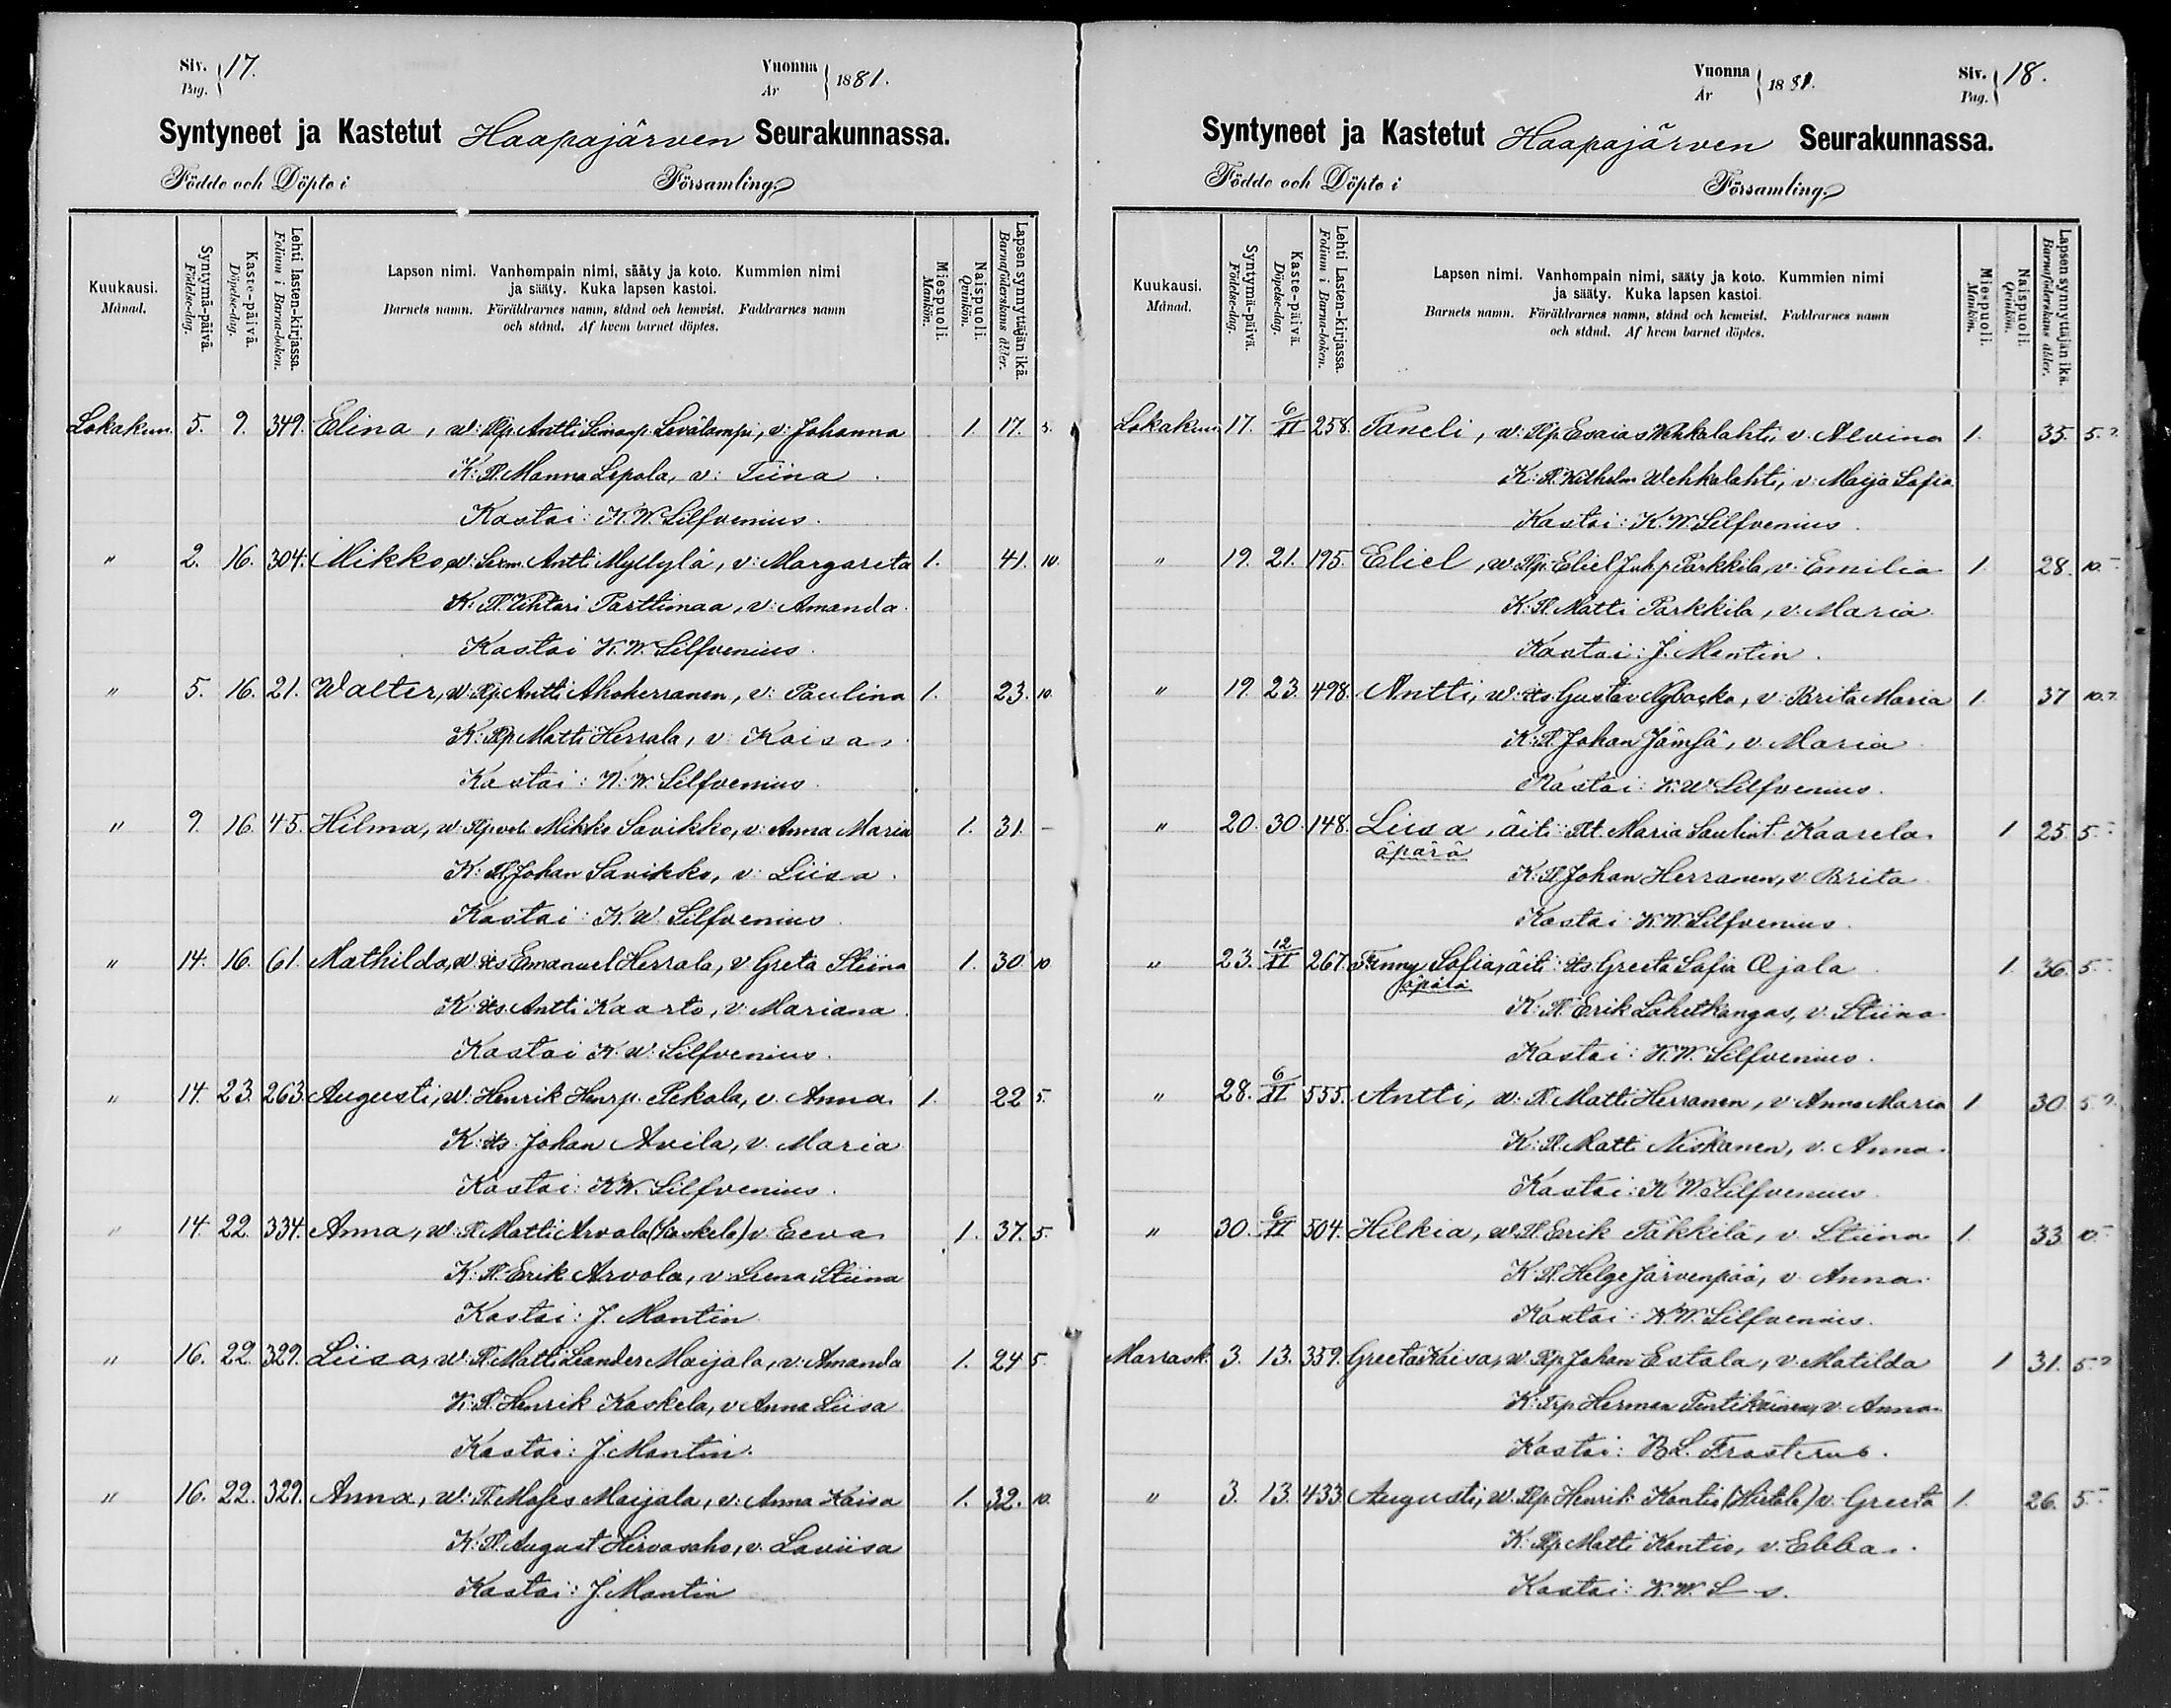 Siv. Pag. 17.
Vuonna År 1881.
Syntyneet ja Kastetut Haapajärven Seurakunnassa.
Födde och Döpte i Församling.
Kuukausi. Månad.
Syntymä-päivä. Födelse-dag.
Kaste-päivä. Döpelse-dag.
Lehti lasten-kirjassa. Folium i Barna-boken.
Lapsen nimi. Vanhempain nimi, sääty ja koto. Kummien nimi
ja sääty. Kuka lapsen kastoi.
Barnets namn. Föräldrarnes namn, stånd och hemvist. Faddrarnes namn
och stånd. Af hvem barnet döptes.
Miespuoli. Mankön.
Naispuoli. Qvinkön.
Lapsen synnyttäjän ikä. Barnaföderskans ålder.
Lokakuu. 5. 9. 349. Elina, w: Tlp. Antti Simonp. Levälampi, v: Johanna 1. 17.
K: Tl. Manna Lepola, v: Tiina
Kastoi: K. W. Silfvenius.
" 2. 16. 304. Mikko, w: Antti Myllylä, v: Margareta 1. 41. 10.
K: Tl. Parttimaa, v: Amanda.
Kastoi K. W. Silfvenius.
" 5. 16. 21. Walter, w: Tlp. Antti Ahoherranen, v: Paulina 1. 23. 10
K: Tlp Matti Herrala, v: Kaisa.
Kastoi: K. W. Silfvenius.
" 9. 16. 45. Hilma, w: Mikko Savikko, v: Anna Maria 1. 31. –
K: Tl. Johan Savikko, v: Liisa.
Kastoi: K. W. Silfvenius.
" 14. 16. 61. Mathilda, w: its Emanuel Herrala, v: Greta Stiina 1. 30 10
K: its. Antti Kaarto, v: Mariana.
Kastoi K. W. Silfvenius.
" 14. 23. 263. Augusti, w. Henrik Henrp. Pekola, v. Anna. 1. 22 5.
K: its. Johan Avila, v. Maria
Kastoi: K. W. Silfvenius.
" 14. 22. 334. Anna, w: Tl. Matti Arvola (Kaskela) v: Eeva 1. 37. 5.
K: Tl. Erik Arvola, v: Leena Stiina
Kastoi: J. Montin
" 16. 22. 329. Liisa, w: Tl. Matti Leander Maijala, v: Amanda 1. 24 5
K: Tl. Henrik Kaskela, v: Anna Liisa
Kastoi: J. Montin.
" 16. 22. 329. Anna, w: Tl. Moses Maijala, v: Anna Kaisa 1. 32. 10.
K: Tl. August Hirvasaho, v: Loviisa
Kastoi: J. Montin
Vuonna År 1881.
Siv. Pag. 18.
Syntyneet ja Kastetut Haapajärven Seurakunnassa.
Födde och Döpte i Församling.
Kuukausi. Månad.
Syntymä-päivä. Födelse-dag.
Kaste-päivä. Döpelse-dag.
Lehti Lasten-kirjassa. Folium i Barna-boken.
Lapsen nimi. Vanhempain nimi, sääty ja koto. Kummien nimi
ja sääty. Kuka lapsen kastoi.
Barnets namn. Föräldrarnes namn, stånd och hemvist. Faddrarnes namn
och stånd. Af hvem barnet döptes.
Miespuoli. Mankön.
Naispuoli. Qvinkön.
Lapsen synnyttäjän ikä. Barnaföderskans ålder.
Lokakuu 17. 6/XI 258. Taneli, w: Tlp. Esaias Wehkalahti, v: Alvina 1. 35. 5.
K: Tl. Wilhelm Wehkalahti, v: Maija Sofia
Kastoi: K. W. Silfvenius.
" 19. 21. 195. Eliel, w: Tlp. Eliel Juhp Parkkila, v: Emilia 1. 28. 10.
K: Tl. Matti Parkkila, v: Maria
Kastoi: J. Montin.
" 19. 23. 498. Antti, w: its Gustav Nybacka, v: Brita Maria 1. 37 10.
K: Tl. Johan Jämsä, v: Maria
Kastoi: K. W. Silfvenius.
" 20. 30. 148. Liisa, äiti: Tlt. Maria Kaarela. 1 25 5
äpärä
K: Tl. Johan Herranen, v: Brita
Kastoi: K. W. Silfvenius.
" 23. 12/XI 267. Fanny Sofia, äiti: its. Greeta Sofia Ojala 1. 36. 5
äpärä
K: Tl. Erik Lähetkangas, v: Stiina
Kastoi: K. W. Silfvenius.
" 28. 6/XI 555. Antti, w: Tl. Matti Herranen, v: Anna Maria 1 30. 5
K: Tl. Matti Niskanen, v. Anna.
Kastoi: K. W. Silfvenius.
" 30. 6/XI 504. Hilkia, w: Tl. Erik Täkkilä, v: Stiina 1. 33 10
K: Tl. Helge Järvenpää, v: Anna.
Kastoi: K. W. Silfvenius.
Marrask. 3. 13. 359. Greeta Kaisa, w: Tlp. Johan Eskola, v: Matilda 1 31. 5
K: Trp. Herman Pentikäinen, v: Anna
Kastoi: B. L. Frosterus.
" 3. 13. 433. Augusti, w: Tlp Henrik Kontio (Hietala) v: Greeta 1. 26. 5
K: Tlp Matti Kontio, v: Ebba.
Kastoi: K. W. S–s.